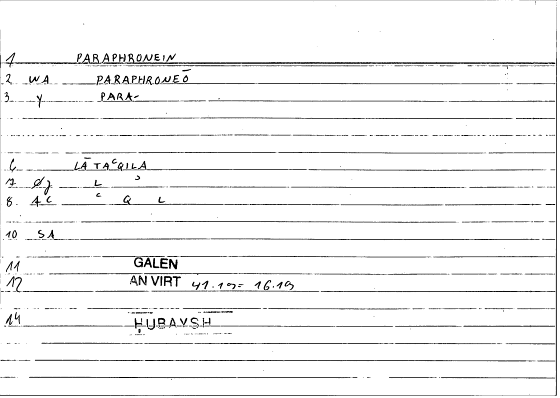 1 PARAPHRONEIN
2 WA PARAPHRONEŌ
3 Y PARA-
6 LĀ TAᶜQILA
7 Øj L ʾ
8. AC ᶜ Q L
10 SA
11 GALEN
12 AN VIRT 41.19 = 16.19
14 ḤUBAYSH